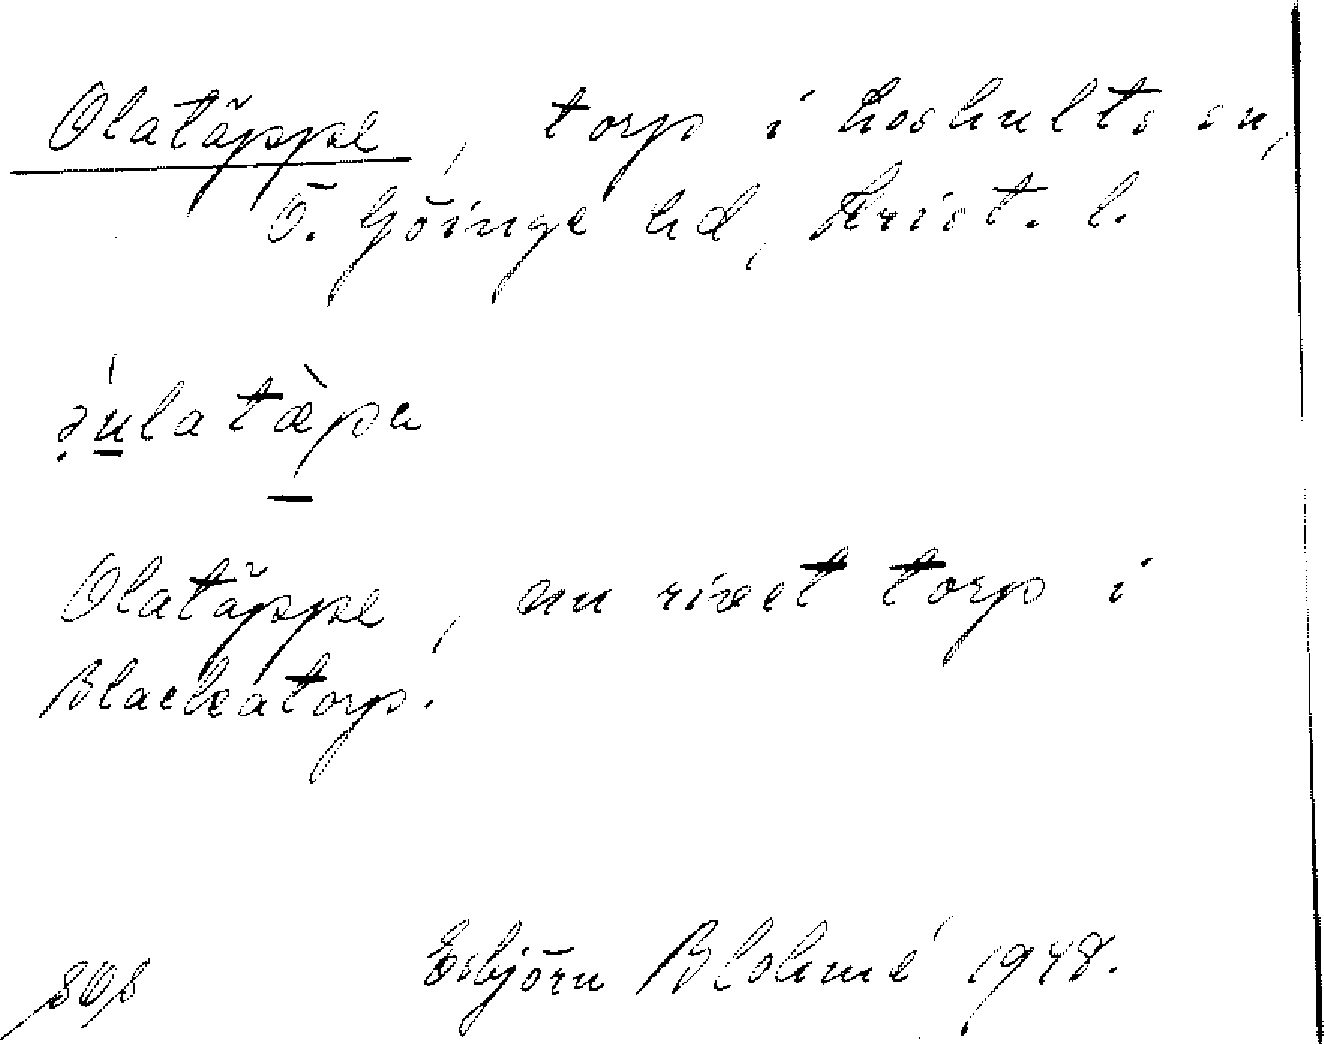 Olatäppe, torp i Loshults sn,
Ö. Göinge hd, Krist. l.
ə́ulatæ̀pa
Olatäppe, en rivet torp i
Blackatorp.
Esbjörn Blohmé 1948.